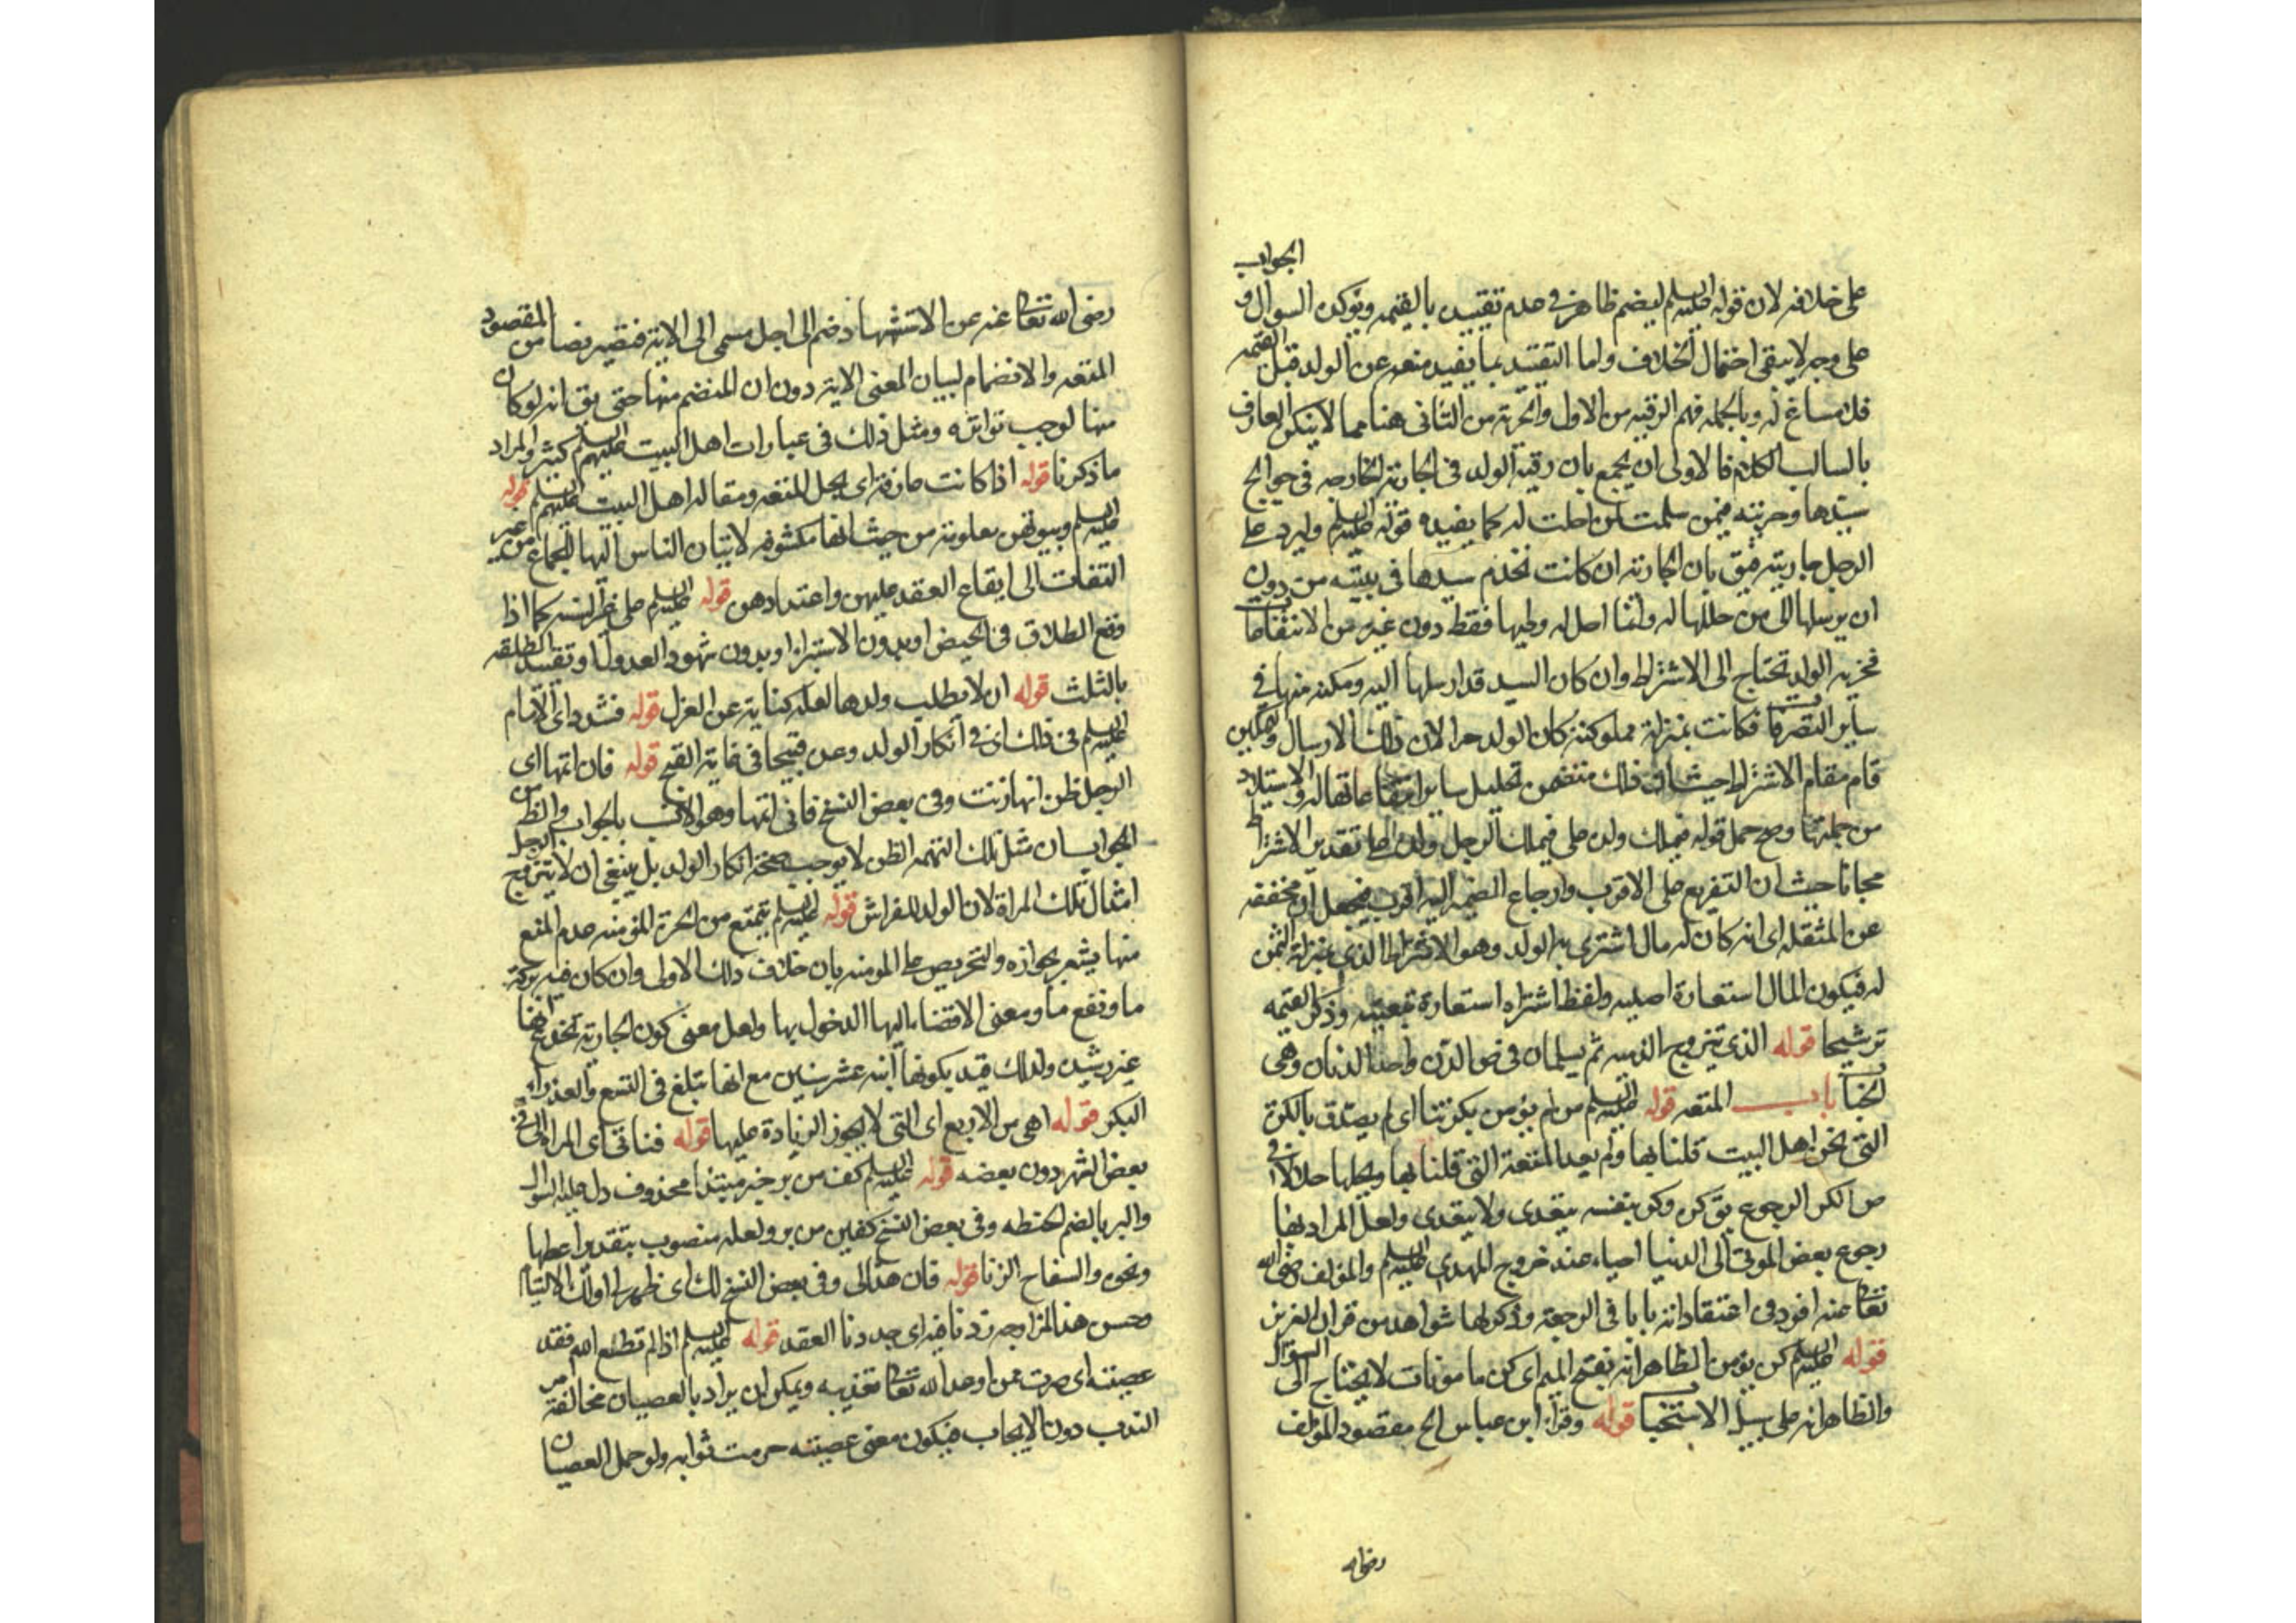 على خلافه لان قوله عليه السلم ليضم ظاهر في عدم تقييده بالقيمه وتوكيد السوال و الجواب
على وجه لا يبقى احتمال الخلاف واما التقييد بما يفيد منعه عن الولد قبل القيمه
فلا مساغ له وبالجمله فهم الرقيه من الاول والحرية من الثانى هنا مما لا ينكره العارف
باساليب الكلام فالاولى ان يجمع بان رقية الولد فى الجارية الخارجه فى حوائج
سيدها وحريته فيمن سلمت لمن احلت له كما يفيده قوله عليه السلم وليرد على
الرجل جاريته فيق بان الجارية ان كانت تخدم سيدها فى بيته من دون
ان يرسلها الى من حللها له وانما احل له وطيها فقط دون غيره من الانتفاعات
فحرية الولد تحتاج الى الاشتراط وان كان السيد قد ارسلها اليه ومكنه منها فى
ساير التصرفات فكانت بمنزلة مملوكته كان الولد حرا لان ذلك الارسال والتمكين
قام مقام الاشتراط حيث ان ذلك متضمن تحليل ساير انتفاعاتها له والاستيلاد
من جملتها وصح حمل قوله فيملك ولده على فيملك الرجل ولده على تقدير الاشتراط
مجانا حيث ان التفريع على الاقرب وارجاع الضمير اليه اقرب فيجعل ان مخففه
عن المثقله اى انه كان له مال اشترى به الولد وهو الاشتراط الذى بمنزلة الثمن
له فيكون المال استعارة اصليه ولفظ اشتراه استعارة تبعيه وذكر القيمه
ترشيحا قوله الذى يتزوج الذميه ثم يسلمان فى ض الدن واحد الدنان وهى
الحباب باب المتعه قوله عليه السلم من لم يؤمن بكرتنا اى لم يصدق بالكرة
التى نحن اهل البيت قلنا بها ولم يعد المتعة التى قلنا بها ويحلها حلالا فى
ص الكر الرجوع يق كره وكر بنفسه يتعدى ولا يتعدى ولعل المراد بها
رجوع بعض الموتى الى الدنيا احياء عند خروج المهدى عليه السلم والمؤلف رضى الله
تعالى عنه افرد فى اعتقاداته بابا فى الرجعة وذكر لها شواهد من قران العزيز
قوله عليه السلم كن يؤمن الظاهر انه بفتح الميم اى كن مامونات لا يحتاج الى السؤال
والظاهر انه على سبيل الاستحباب قوله وقرأ ابن عباس الخ مقصود المؤلف
رضى الله
رضى الله تعالى عنه عن الاستشهاد ضم الى اجل مسمى الى الاية فتصير نصا من المقصود
المتعه والانضمام لبيان المعنى الاية دون ان المنضم منها حتى يق انه لو كان
منها لوجب تواتره ومثل ذلك فى عبارات اهل البيت عليهم السلم كثير والمراد
ما ذكرنا قوله اذا كانت عارفة اى بحل المتعه ومقاله اهل البيت عليهم السلم قوله
عليه السلم وبيوتهن معلومة من حيث انها مكشوفه لاتيان الناس اليها للجماع من غير
التفات الى ايقاع العقد عليهن واعتدادهن قوله عليه السلم على غير السنه كما اذا
وقع الطلاق فى الحيض او بدون الاستبراء او بدون شهود العدول او تقييد المطلقه
بالثلث قوله ان لا يطلب ولدها لعله كناية عن العزل قوله فشدد اى الامام
عليه السلم فى ذلك اى فى انكار الولد وعده قبيحا فى غاية القبح قوله فان اتهمها اى
الرجل ظن انها زنت وفى بعض النسخ فانى اتهمها وهو الانسب بالجواب والظ من
الجواب ان مثل تلك التهمه الظن لا يوجب صحة انكار الولد بل ينبغى ان لا يتزوج الرجل
امثال تلك المراة لان الولد للفراش قوله عليه السلم يتمتع من الحرة المؤمنه عدم المنع
منها يشعر بجوازه والتحريص على المومنه بان خلاف ذلك الاولى وان كان فيه بركة
ما ونفع ما ومعنى الافضاء اليها الدخول بها ولعل معنى كون الجارية تخدع انها
غير رشيده ولذلك قيد بكونها ابنه عشر سنين مع انها تبلغ فى التسع والعذراء
البكر قوله اهى من الاربع اى التى لا يجوز الزيادة عليها قوله فتاتى اى المراة التى فى
بعض الشهر دون بعضه قوله عليه السلم كف من بر خبر مبتدا محذوف دل عليه السوال
والبر بالضم الحنطه وفى بعض النسخ كفين من بر ولعله منصوب بتقدير اعطها
ونحوه والسفاح الزنا قوله فان هذا لى وفى بعض النسخ لك اى ظهر له اول الالتيام
وحسن هذا المزاوجه زدنا فيه اى جددنا العقد قوله عليه السلم اذا لم تطع الله فقد
عصيته اى صرت ممن اوعد الله تعالى تعذيبه ويمكن ان يراد بالعصيان مخالفة من
الندب دون الايجاب فيكون معنى عصيته حرمت ثوابه ولو حمل العصيان